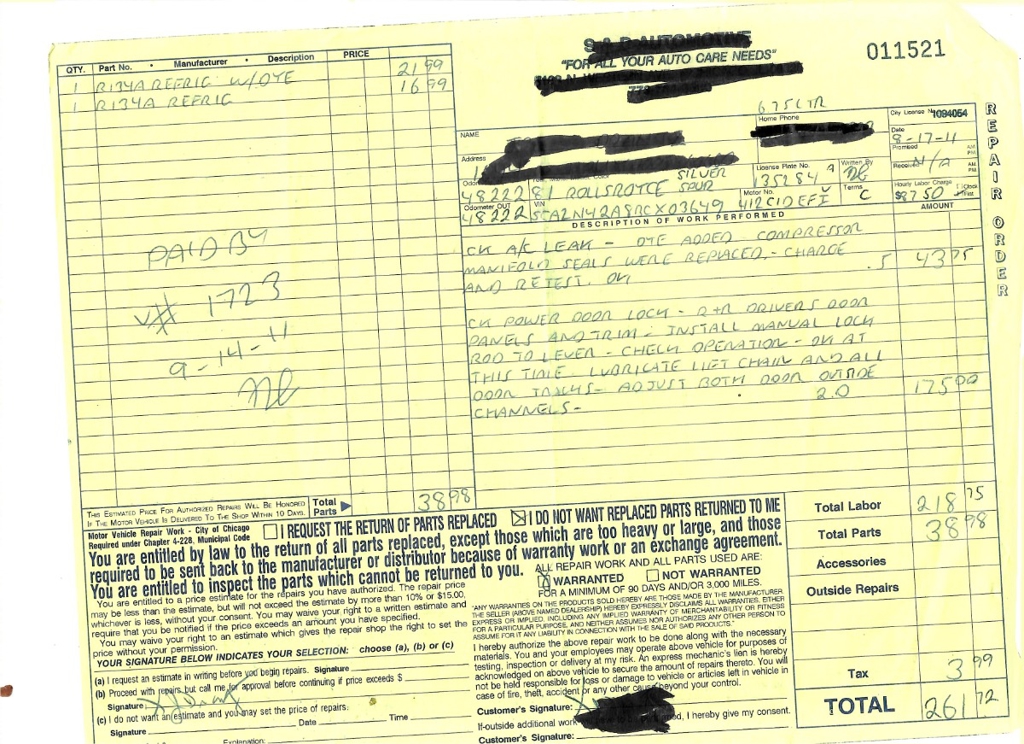 S.A.D AUTOMOTIVE
"FOR ALL YOUR AUTO CARE NEEDS"
011521
REPAIR ORDER
QTY. Part No. • Manufacturer • Description PRICE
1 R134A REFRIG W/DYE 21 99
1 R134A REFRIG 16 99
PAID BY
V# 1723
9-14-11
THIS ESTIMATED PRICE FOR AUTHORIZED REPAIRS WILL BE HONORED
IF THE MOTOR VEHICLE IS DELIVERED TO THE SHOP WITHIN 10 DAYS.
Total Parts 38 98
6.75 LTR
NAME
Home Phone
City License No. 1094054
Date 8-17-11
Address
Promised AM PM
SILVER
License Plate No. 135284
Written By
Received N/A AM PM
48222 81 ROLLSROYCE SPUR
Motor No. 412 CID EFI
Terms C
Hourly Labor Charge $87 50
Odometer OUT 48222 VIN SCAZN42A8BCX03649
DESCRIPTION OF WORK PERFORMED
AMOUNT
CK A/C LEAK - DYE ADDED COMPRESSOR
MANIFOLD SEALS WERE REPLACED - CHARGE .5 43 75
AND RETEST. OK
CK POWER DOOR LOCK - R+R DRIVERS DOOR
PANELS AND TRIM - INSTALL MANUAL LOCK
ROD TO LEVER - CHECK OPERATION - OK AT
THIS TIME LUBRICATE LIFT CHAIN AND ALL
DOOR TRACKS - ADJUST BOTH DOOR OUTSIDE
CHANNELS - 2.0 175 00
Motor Vehicle Repair Work - City of Chicago
Required under Chapter 4-228, Municipal Code
I REQUEST THE RETURN OF PARTS REPLACED
I DO NOT WANT REPLACED PARTS RETURNED TO ME
You are entitled by law to the return of all parts replaced, except those which are too heavy or large, and those
required to be sent back to the manufacturer or distributor because of warranty work or an exchange agreement.
You are entitled to inspect the parts which cannot be returned to you.
You are entitled to a price estimate for the repairs you have authorized. The repair price
may be less than the estimate, but will not exceed the estimate by more than 10% or $15.00,
whichever is less, without your consent. You may waive your right to a written estimate and
require that you be notified if the price exceeds an amount you have specified.
You may waive your right to an estimate which gives the repair shop the right to set the
price without your permission.
YOUR SIGNATURE BELOW INDICATES YOUR SELECTION: choose (a), (b) or (c)
(a) I request an estimate in writing before you begin repairs. Signature
(b) Proceed with repairs but call me for approval before continuing if price exceeds $
Signature
(c) I do not want an estimate and you may set the price of repairs.
Signature Date Time
Explanation:
ALL REPAIR WORK AND ALL PARTS USED ARE:
WARRANTED NOT WARRANTED
FOR A MINIMUM OF 90 DAYS AND/OR 3,000 MILES.
"ANY WARRANTIES ON THE PRODUCTS SOLD HEREBY ARE THOSE MADE BY THE MANUFACTURER
THE SELLER (ABOVE NAMED DEALERSHIP) HEREBY EXPRESSLY DISCLAIMS ALL WARRANTIES, EITHER
EXPRESS OR IMPLIED, INCLUDING ANY IMPLIED WARRANTY OF MERCHANTABILITY OR FITNESS
FOR A PARTICULAR PURPOSE, AND NEITHER ASSUMES NOR AUTHORIZES ANY OTHER PERSON TO
ASSUME FOR IT ANY LIABILITY IN CONNECTION WITH THE SALE OF SAID PRODUCTS."
I hereby authorize the above repair work to be done along with the necessary
materials. You and your employees may operate above vehicle for purposes of
testing, inspection or delivery at my risk. An express mechanic's lien is hereby
acknowledged on above vehicle to secure the amount of repairs thereto. You will
not be held responsible for loss or damage to vehicle or articles left in vehicle in
case of fire, theft, accident or any other cause beyond your control.
Customer's Signature:
If outside additional work I hereby give my consent.
Customer's Signature:
Total Labor 218 75
Total Parts 38 98
Accessories
Outside Repairs
Tax 3 99
TOTAL 261 72